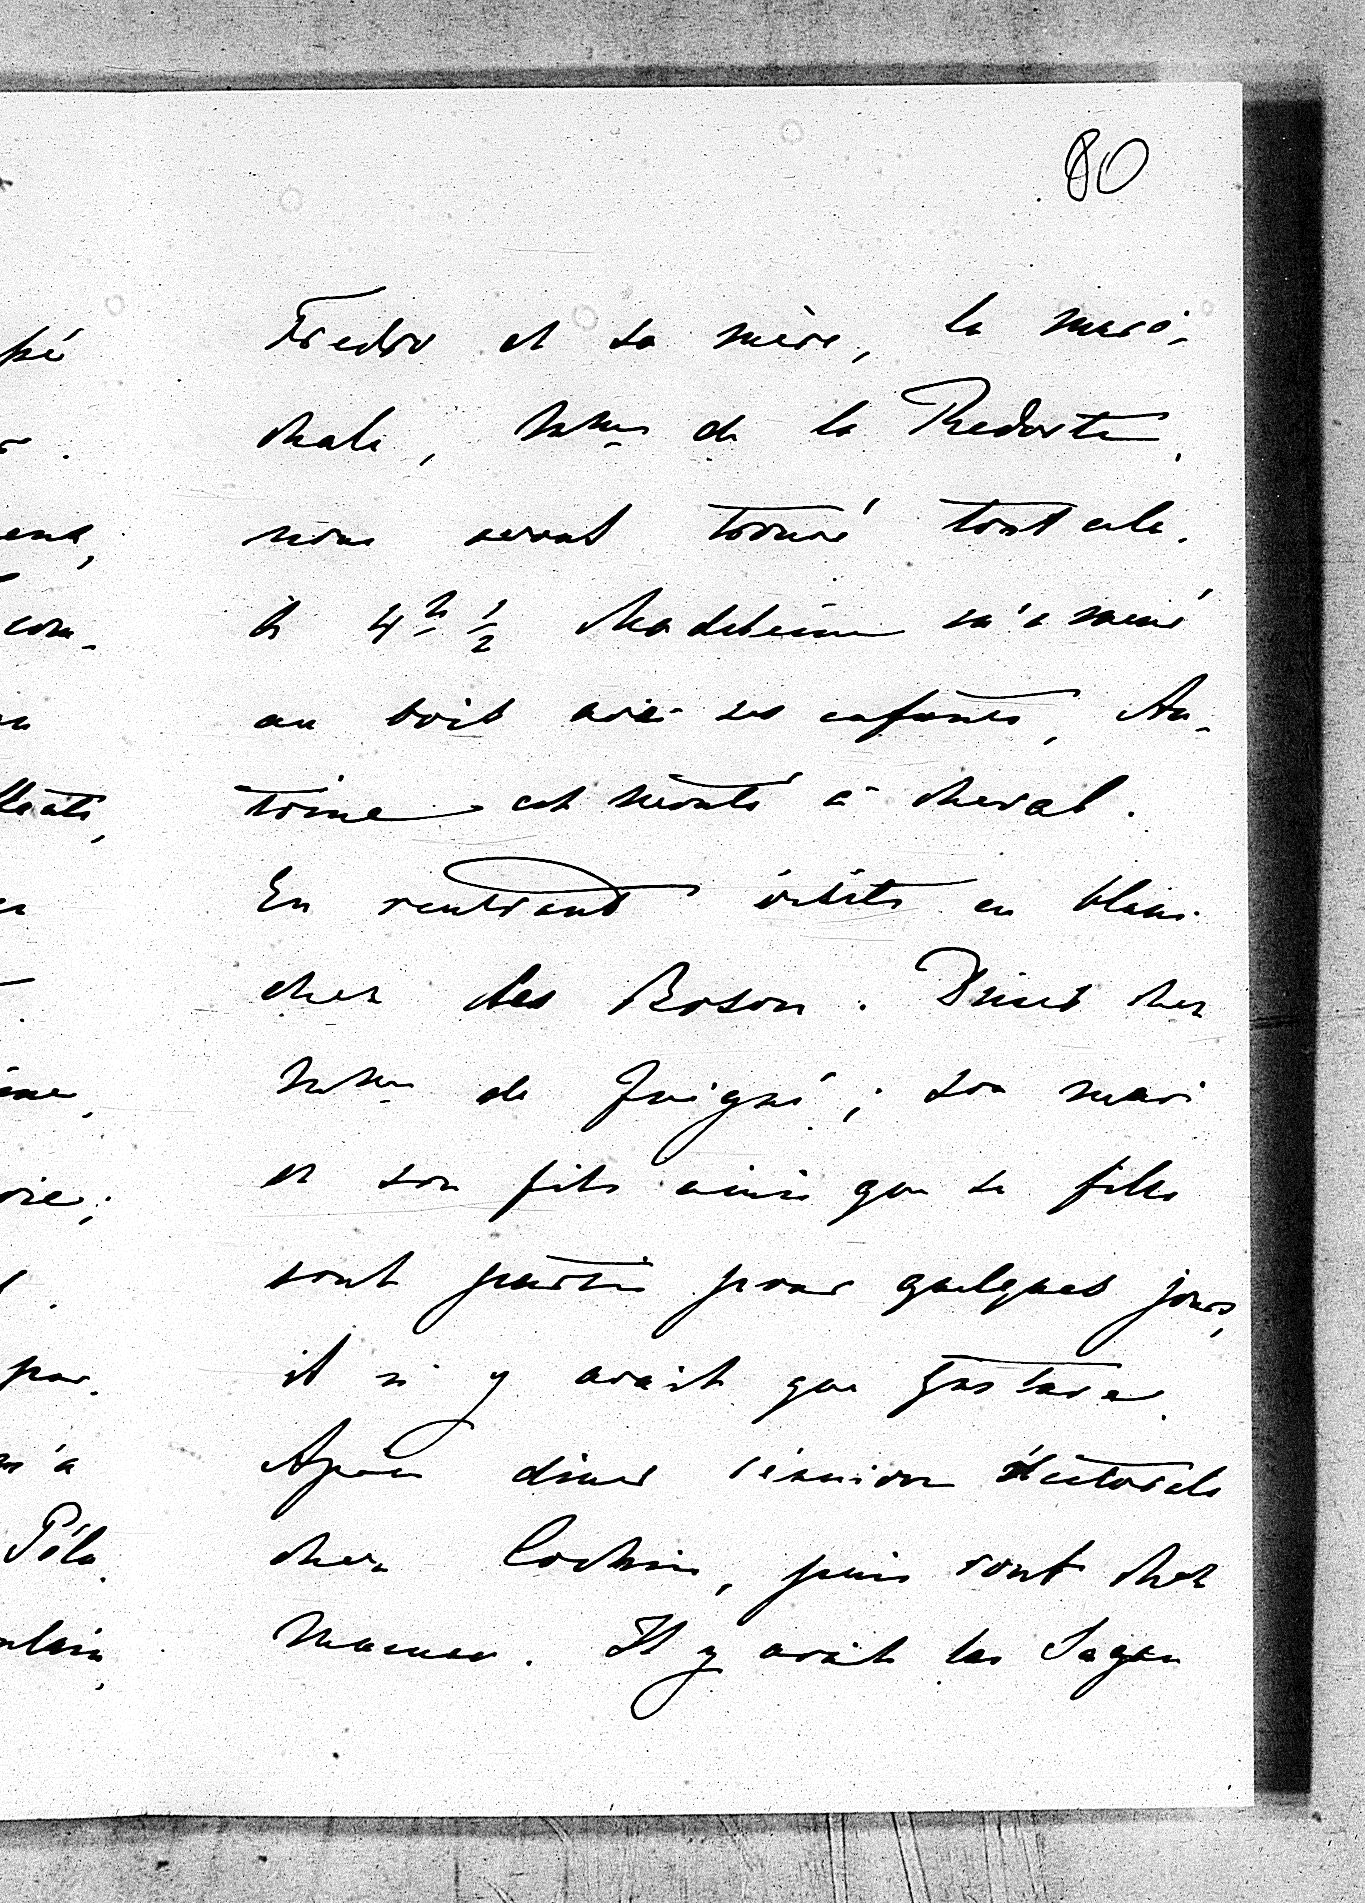 80
Fredro et sa mère, la maré-
chale, Mme de la Redorte,
nous avons trouvé tout cela.
À 4h 1/2 Madeleine m'a mené
au bois avec ses enfants, An-
toine est monté à cheval.
En rentrant visite en blanc
chez les Boson. Diner chez
Mme de Juigné ; son mari
et son fils ainsi que sa fille
sont partis pour quelques jours,
il n'y avait que Gustave.
Après diner réunion électorale
chez Cochin, puis rout chez
Maman. Il y avait les Sagan
pé
com-
par-
m'a